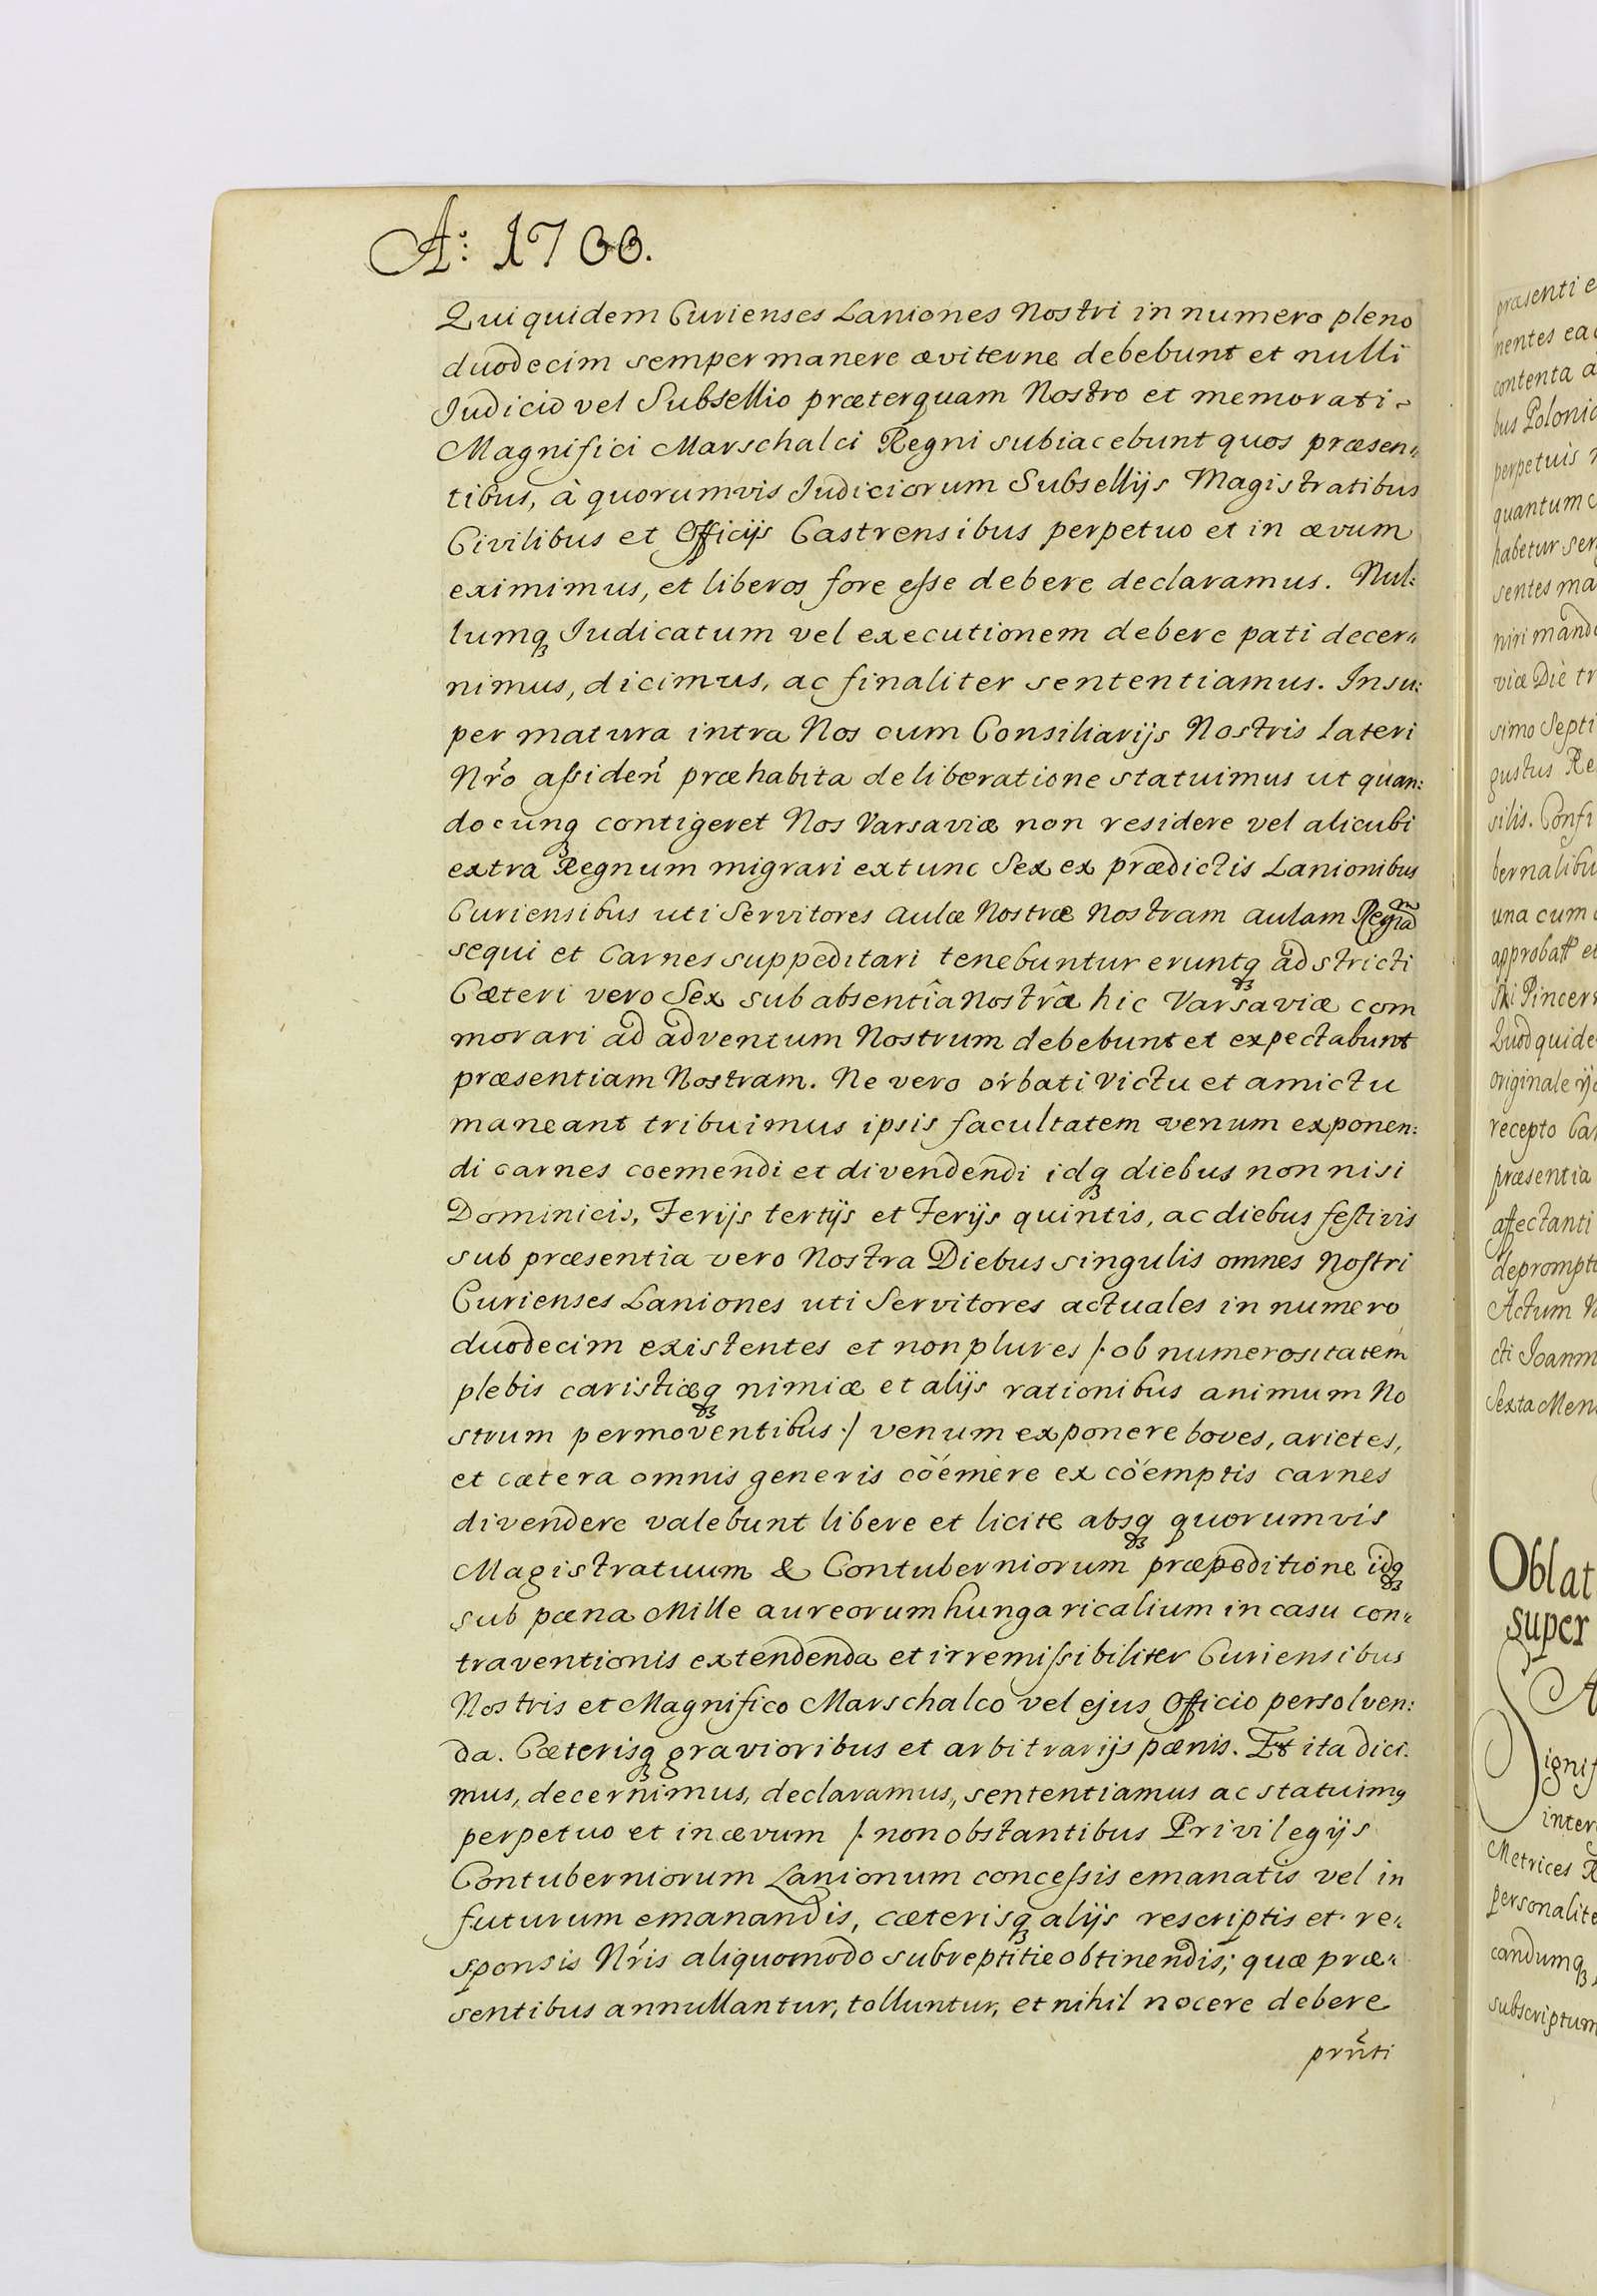 A͞o: 1700.
Qui quidem Curienses Laniones Nostri in numero pleno
duodecim semper manere æviterne debebunt et nulli
Judicio vel Subsellio præterquam Nostro et memorati
Magnifici Marschalci Regni subiacebunt quos præsen„
tibus, à quorumvis Judiciorum Subsellijs Magistratibus
Civilibus et Officijs Castrensibus perpetuo et in ævum
eximimus, et liberos fore esse debere declaramus. Nul:
lumqȝ Judicatum vel executionem debere pati decer„
nimus, dicimus, ac finaliter sententiamus. Insu:
per matura intra Nos cum Consiliarijs Nostris Lateri
Nr̃o assideñ præhabita deliberatione statuimus ut quan:
docunqȝ contigeret Nos Varsaviæ non residere vel alicubi
extra Regnum migrari extunc Sex ex prædictis Lanionibus
Curiensibus uti Servitores aulæ Nostræ nostram aulam Regiã
sequi et Carnes suppeditari tenebuntur eruntqȝ adstricti
Cæteri vero Sex sub absentîa nostrâ hic Varsaviæ com
morari ad adventum Nostrum debebunt et expectabunt
præsentiam Nostram. Ne vero orbati victu et amictu
maneant tribuimus ipsis facultatem venum exponen:
di carnes coemendi et divendendi idqȝ diebus non nisi
Dominicis, Ferijs tertijs et Ferijs quintis, ac diebus festivis
sub præsentia vero Nostra Diebus singulis omnes Nostri
Curienses Laniones uti Servitores actuales in numero
duodecim existentes et non plures /: ob numerositatem
plebis caristiæqȝ nimiæ et alijs rationibus animum No
strum permoventibus :/ venum exponere boves, arietes,
et cætera omnis generis cöémere ex cöemptis carnes
divendere valebunt libere et licite absqȝ quorumvis
Magistratuum & Contuberniorum præpeditione idqȝ
sub pæna Mille aureorum hungaricalium in casu con„
traventionis extendenda et irremissibiliter Curiensibus
Nostris et Magnifico Marschalco vel ejus Officio persolven:
da. Cæterisqȝ gravioribus et arbitrarijs pænis. Et ita dici:
mus, decernimus, declaramus, sententiamus ac statuimꝰ
perpetuo et in ævum /: non obstantibus Privilegijs
Contuberniorum Lanionum concessis emanatis vel in
futurum emanandis, cæterisqȝ alijs rescriptis et re„
sponsis Nr̃is aliquomodo subreptitie obtinendis; quæ præ„
sentibus annullantur, tolluntur, et nihil nocere debere
prñti
præsenti
contenta
bus
perpetuis
quantum
habetur
sentes
viæ Die
simo
gustus
silis.
una cum
Pincer
Quod quide
originale
recepto
præsentia
affectanti
deprompt
Actum
cti Joann
Sexta Men
Oblat
super
ignif
inter
Metrices
personalite
candumqȝ
subscriptum